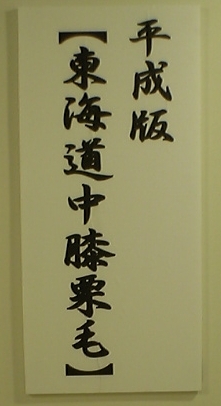 平成版
【東海道中膝栗毛】